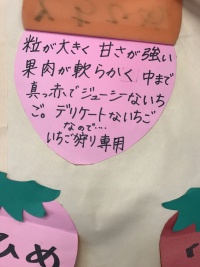 粒が大きく 甘さが強い
果肉が軟らかく 中まで
真っ赤でジューシーないち
ご。デリケートないちご
なので…
いちご狩り専用
ひめ